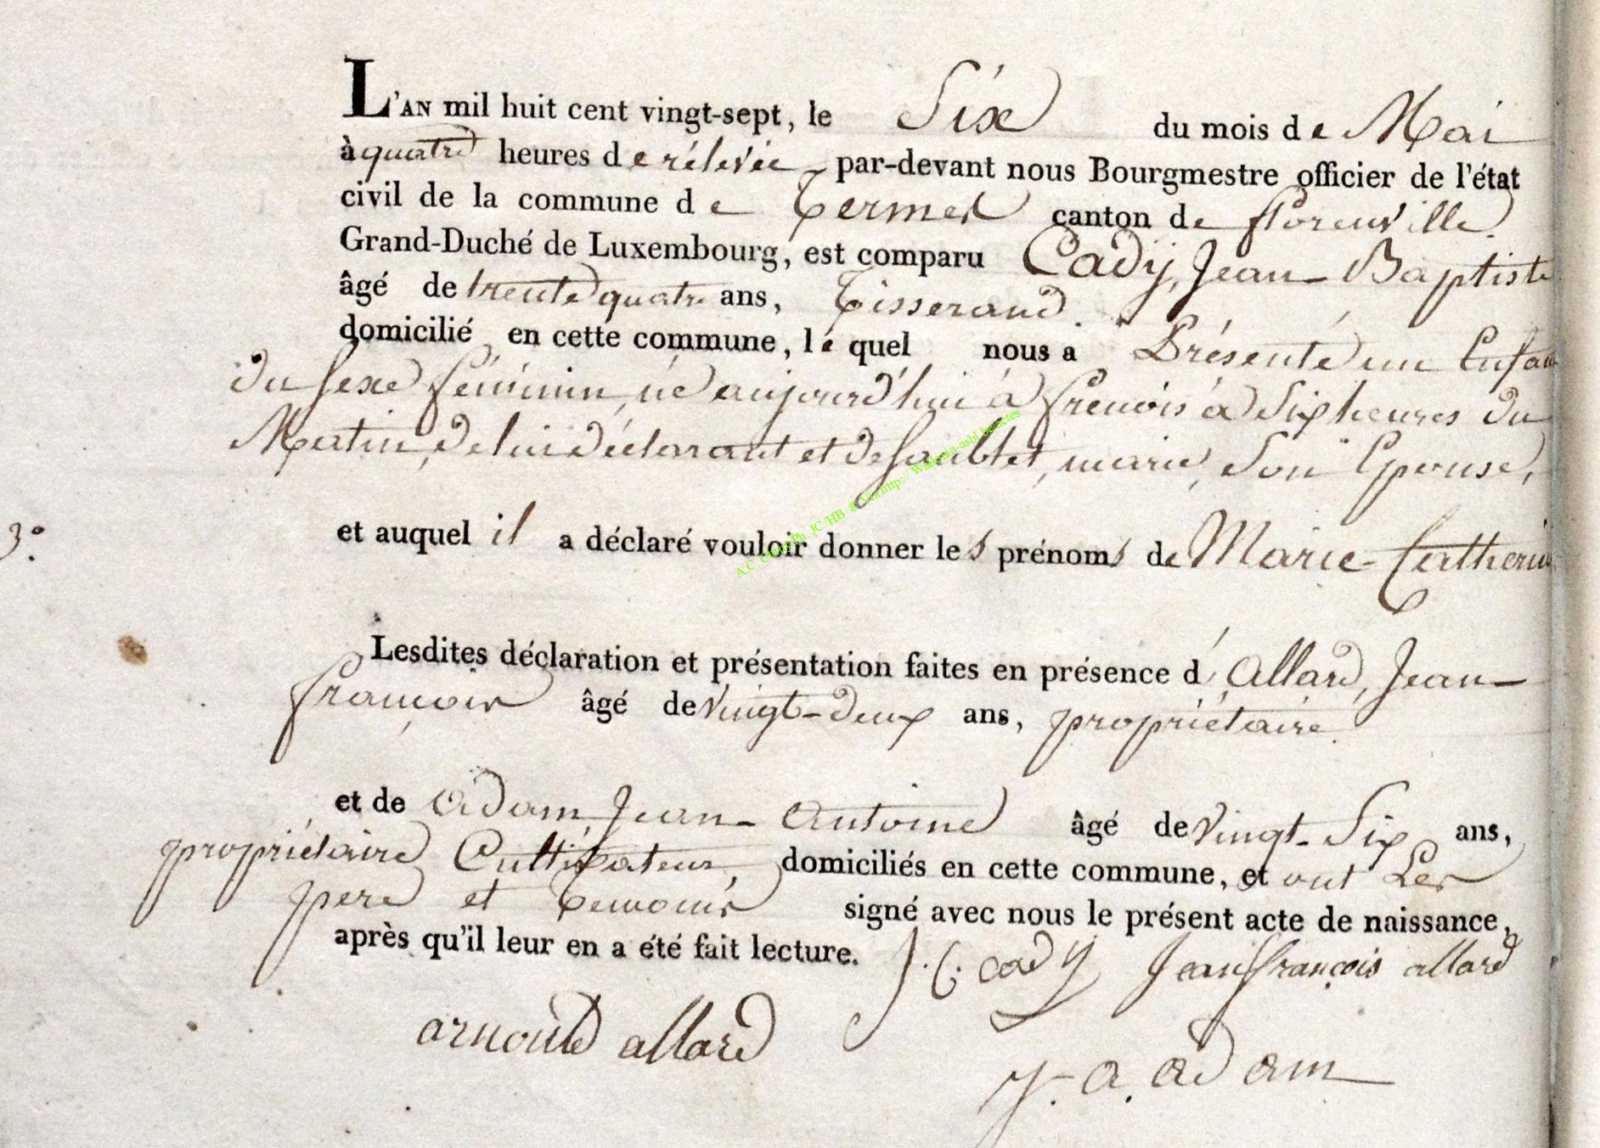 L'AN mil huit cent vingt-sept, le Six du mois de Mai
à quatre heures de rélevée par-devant nous Bourgmestre officier de l'état
civil de la commune de Termes canton de florenville.
Grand-Duché de Luxembourg, est comparu Cady, Jean-Baptiste
âgé de trente quatre ans, Tisserand.
domicilié en cette commune, le quel nous a Présenté un Enfan
du sexe féminin, né aujourd'hui à frenois à Six heures du
Matin, de lui déclarant et de Saublet, marie, Son Epouse,
3° et auquel il a déclaré vouloir donner les prénoms de Marie-Catherin
Lesdites déclaration et présentation faites en présence d' Allard, Jean-
françois âgé de vingt-deux ans, propriétaire.
et de Adam Jean-Antoine âgé de vingt-Six ans,
propriétaire Cultivateur, domiciliés en cette commune, et ont Les
pere et Temoins signé avec nous le présent acte de naissance,
après qu'il leur en a été fait lecture. J. C. cady Jean françois allard
arnould allard
J. a. adam